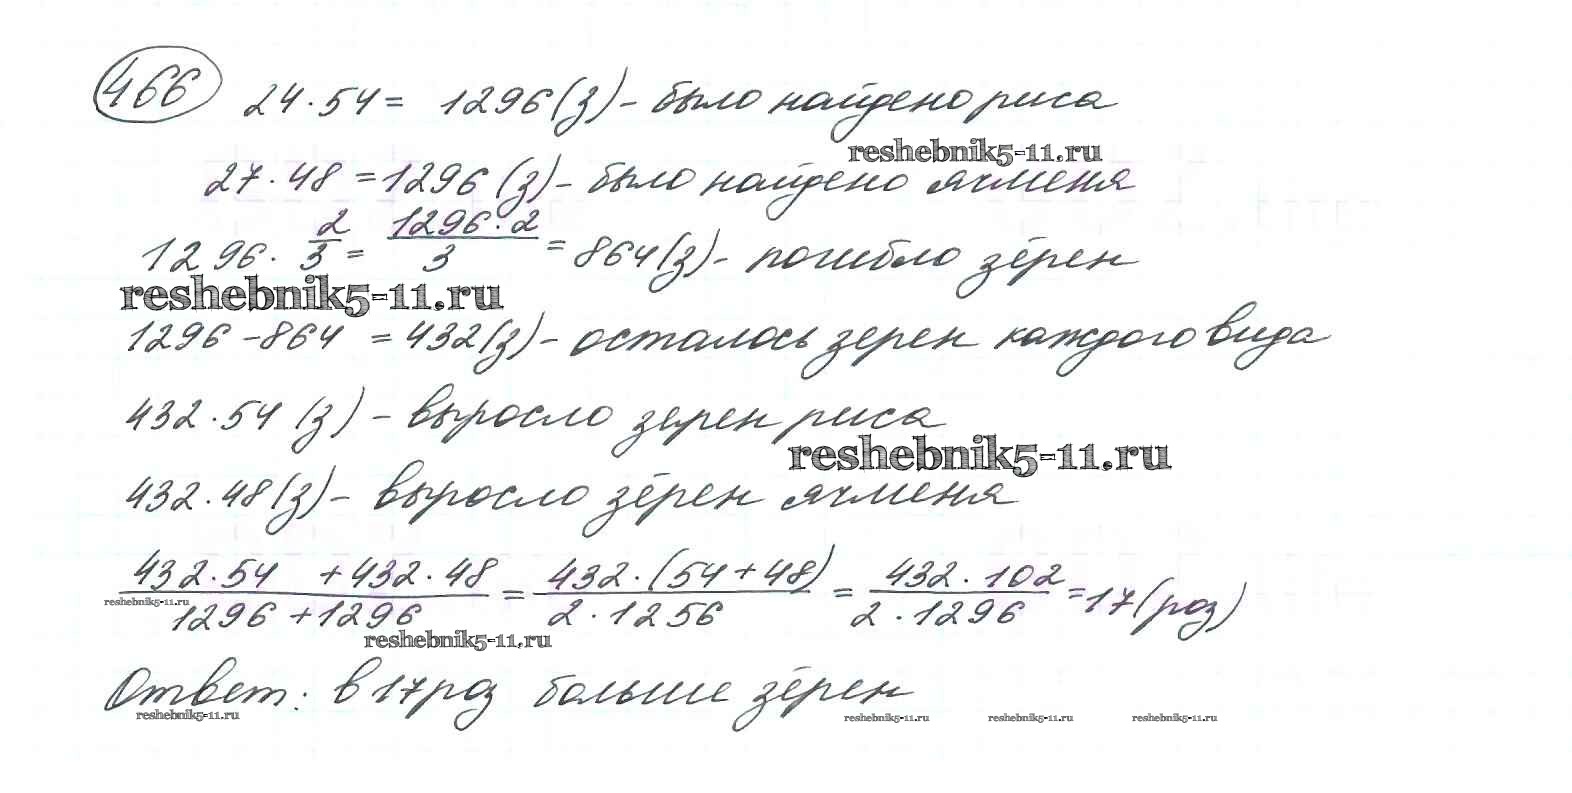 466 24·54= 1296(з) - было найдено риса
reshebnik5-11.ru
27·48 =1296 (з) - было найдено ячменя
1296· 2/3 = 1296·2/3 = 864(з) - погибло зёрен
reshebnik5-11.ru
1296 -864 = 432(з) - осталось зерен каждого вида
432·54 (з) - выросло зерен риса
reshebnik5-11.ru
432·48(з) - выросло зёрен ячменя
432·54 +432·48 / 1296 +1296 = 432·(54+48) / 2·1256 = 432·102 / 2·1296 =17(роз)
reshebnik5-11.ru
reshebnik5-11.ru
Ответ: в 17роз больше зёрен
reshebnik5-11.ru reshebnik5-11.ru reshebnik5-11.ru reshebnik5-11.ru